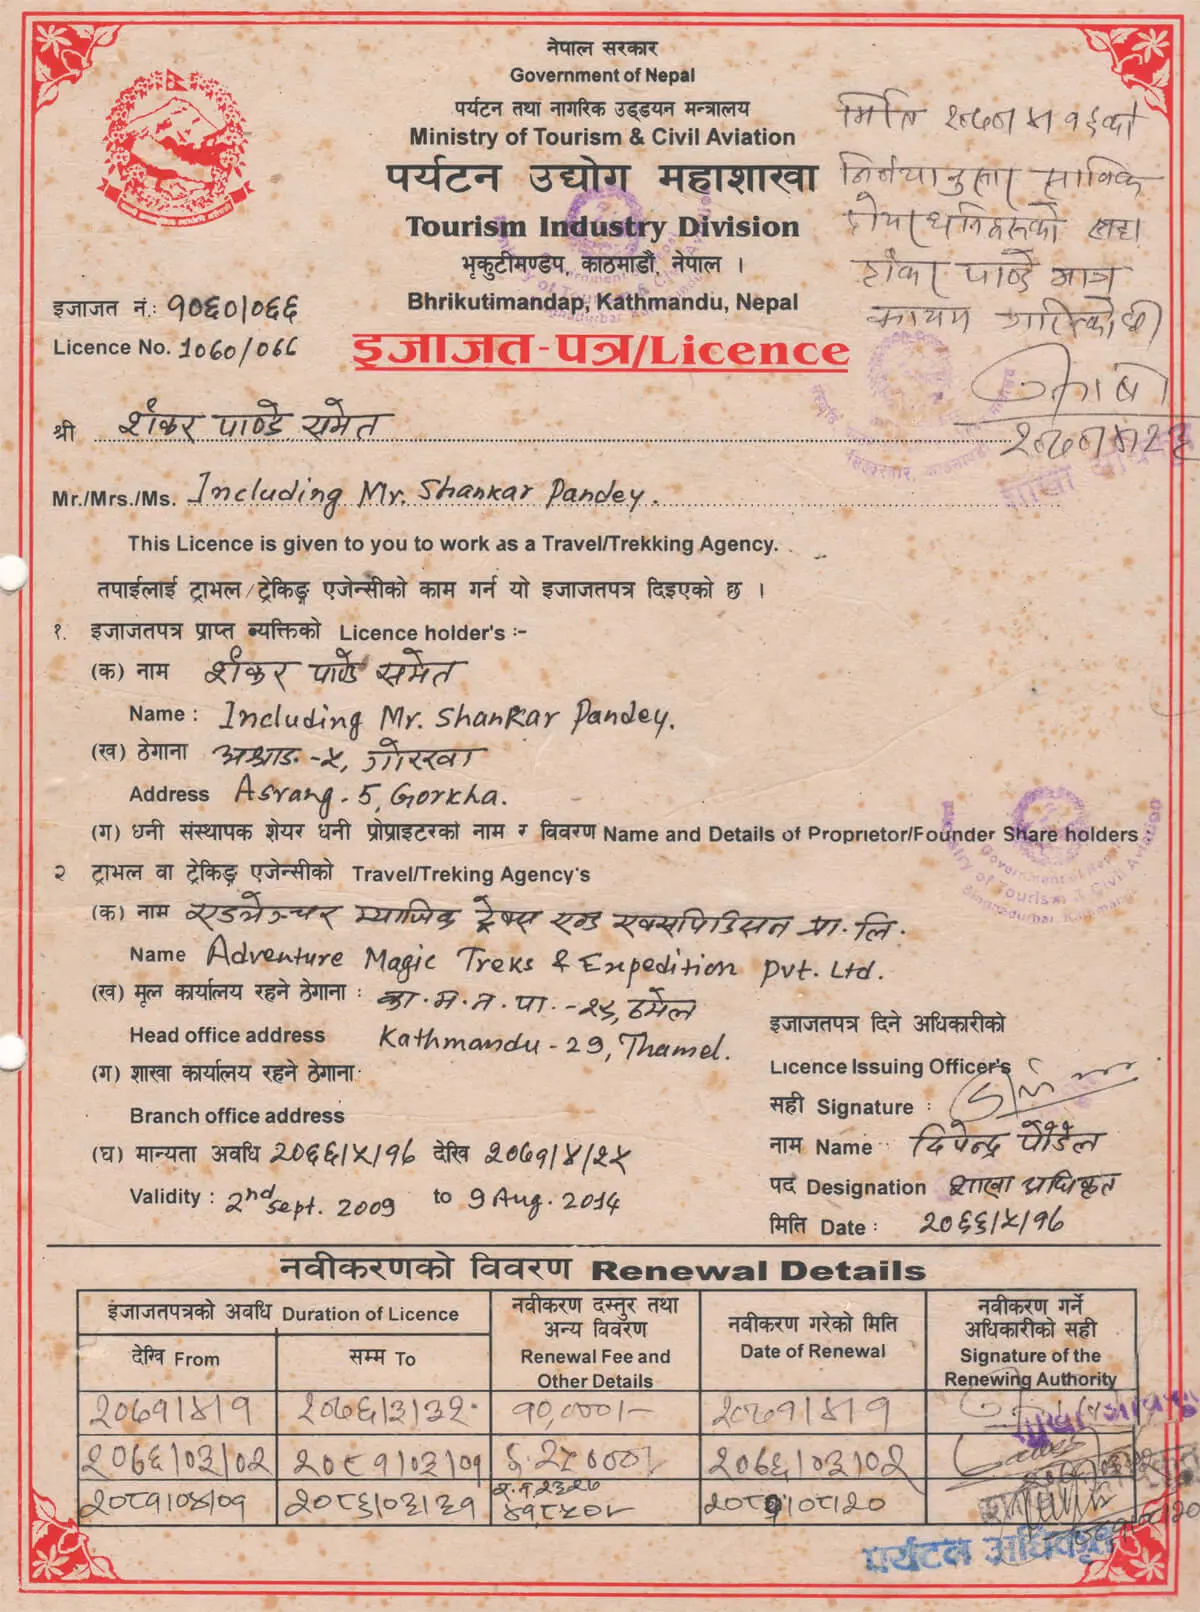 नेपाल सरकार
Government of Nepal
पर्यटन तथा नागरिक उड्डयन मन्त्रालय
Ministry of Tourism & Civil Aviation
पर्यटन उद्योग महाशाखा
Tourism Industry Division
भृकुटीमण्डप, काठमाडौं, नेपाल ।
Bhrikutimandap, Kathmandu, Nepal
मिति
निर्णयानुसार साविक
पाण्डे मात्र
कायम
इजाजत नं.: १०६०/०६६
Licence No. 1060/066
इजाजत-पत्र/Licence
श्री शंकर पाण्डे समेत
Mr./Mrs./Ms. Including Mr. Shankar Pandey.
This Licence is given to you to work as a Travel/Trekking Agency.
तपाईलाई ट्राभल/ट्रेकिङ्ग एजेन्सीको काम गर्न यो इजाजतपत्र दिइएको छ ।
१. इजाजतपत्र प्राप्त व्यक्तिको Licence holder's :-
(क) नाम शंकर पाण्डे समेत
Name : Including Mr. Shankar Pandey.
(ख) ठेगाना -५, गोरखा
Address Asrang-5, Gorkha.
(ग) धनी संस्थापक शेयर धनी प्रोप्राइटरको नाम र विवरण Name and Details of Proprietor/Founder Share holders :
२ ट्राभल वा ट्रेकिङ्ग एजेन्सीको Travel/Treking Agency's
(क) नाम एडभेञ्चर म्याजिक ट्रेक्स एन्ड एक्सपिडिसन प्रा.लि.
Name Adventure Magic Treks & Expedition Pvt. Ltd.
(ख) मूल कार्यालय रहने ठेगाना : का.म.न.पा.-२९, ठमेल
Head office address Kathmandu-29, Thamel.
(ग) शाखा कार्यालय रहने ठेगाना:
Branch office address
(घ) मान्यता अवधि २०६६/५/१७ देखि २०७१/४/२५
Validity : 2nd Sept. 2009 to 9 Aug. 2014
इजाजतपत्र दिने अधिकारीको
Licence Issuing Officer's
सही Signature :
नाम Name दिपेन्द्र पौडेल
पद Designation शाखा अधिकृत
मिति Date : २०६६/५/१७
नवीकरणको विवरण Renewal Details
इजाजतपत्रको अवधि Duration of Licence
नवीकरण दस्तुर तथा अन्य विवरण
Renewal Fee and Other Details
नवीकरण गरेको मिति
Date of Renewal
नवीकरण गर्ने अधिकारीको सही
Signature of the Renewing Authority
देखि From सम्म To
२०७१/४/१ २०७६/३/३२ १०,०००/- २०७१/४/१
२०७६/०३/०२ २०८१/०३/०१ २०७६/०३/०२
२०८१/०४/०१ २०८६/०३/३१
पर्यटन अधिकृत